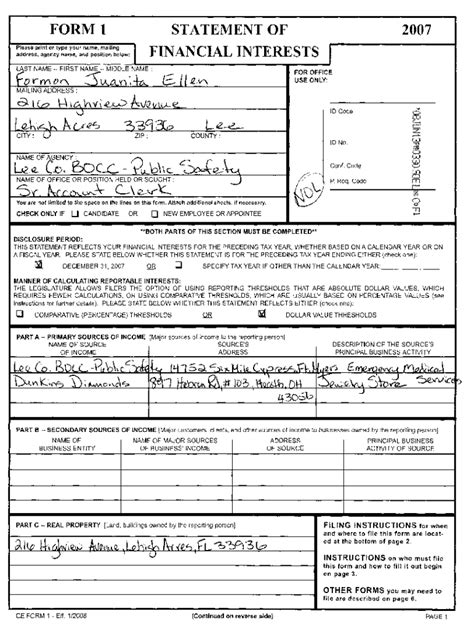 FORM 1 STATEMENT OF 2007
FINANCIAL INTERESTS
Please print or type your name, mailing address, agency name, and position below:
LAST NAME -- FIRST NAME -- MIDDLE NAME :
Formon Juanita Ellen
MAILING ADDRESS :
216 Highview Avenue
Lehigh Acres 33936 Lee
CITY : ZIP : COUNTY :
NAME OF AGENCY :
Lee Co. BOCC - Public Safety
NAME OF OFFICE OR POSITION HELD OR SOUGHT :
Sr. Account Clerk
You are not limited to the space on the lines on this form. Attach additional sheets, if necessary.
CHECK ONLY IF CANDIDATE OR NEW EMPLOYEE OR APPOINTEE
FOR OFFICE USE ONLY:
ID Code
ID No.
Conf. Code
P. Req. Code
**BOTH PARTS OF THIS SECTION MUST BE COMPLETED**
DISCLOSURE PERIOD:
THIS STATEMENT REFLECTS YOUR FINANCIAL INTERESTS FOR THE PRECEDING TAX YEAR, WHETHER BASED ON A CALENDAR YEAR OR ON
A FISCAL YEAR. PLEASE STATE BELOW WHETHER THIS STATEMENT IS FOR THE PRECEDING TAX YEAR ENDING EITHER (check one):
DECEMBER 31, 2007 OR SPECIFY TAX YEAR IF OTHER THAN THE CALENDAR YEAR:
MANNER OF CALCULATING REPORTABLE INTERESTS:
THE LEGISLATURE ALLOWS FILERS THE OPTION OF USING REPORTING THRESHOLDS THAT ARE ABSOLUTE DOLLAR VALUES, WHICH
REQUIRES FEWER CALCULATIONS, OR USING COMPARATIVE THRESHOLDS, WHICH ARE USUALLY BASED ON PERCENTAGE VALUES (see
instructions for further details). PLEASE STATE BELOW WHETHER THIS STATEMENT REFLECTS EITHER (check one):
COMPARATIVE (PERCENTAGE) THRESHOLDS OR DOLLAR VALUE THRESHOLDS
PART A -- PRIMARY SOURCES OF INCOME [Major sources of income to the reporting person]
NAME OF SOURCE OF INCOME SOURCE'S ADDRESS DESCRIPTION OF THE SOURCE'S PRINCIPAL BUSINESS ACTIVITY
Lee Co. BOCC - Public Safety 14752 Six Mile Cypress, Ft. Myers Emergency Medical Services
Dunkins Diamonds 897 Hebron Rd, #103, Heath, OH 43056 Jewelry Store
PART B -- SECONDARY SOURCES OF INCOME [Major customers, clients, and other sources of income to businesses owned by the reporting person]
NAME OF BUSINESS ENTITY NAME OF MAJOR SOURCES OF BUSINESS' INCOME ADDRESS OF SOURCE PRINCIPAL BUSINESS ACTIVITY OF SOURCE
PART C -- REAL PROPERTY [Land, buildings owned by the reporting person]
216 Highview Avenue, Lehigh Acres, FL 33936
FILING INSTRUCTIONS for when
and where to file this form are located
at the bottom of page 2.
INSTRUCTIONS on who must file
this form and how to fill it out begin
on page 3.
OTHER FORMS you may need to
file are described on page 6.
CE FORM 1 - Eff. 1/2008 (Continued on reverse side) PAGE 1